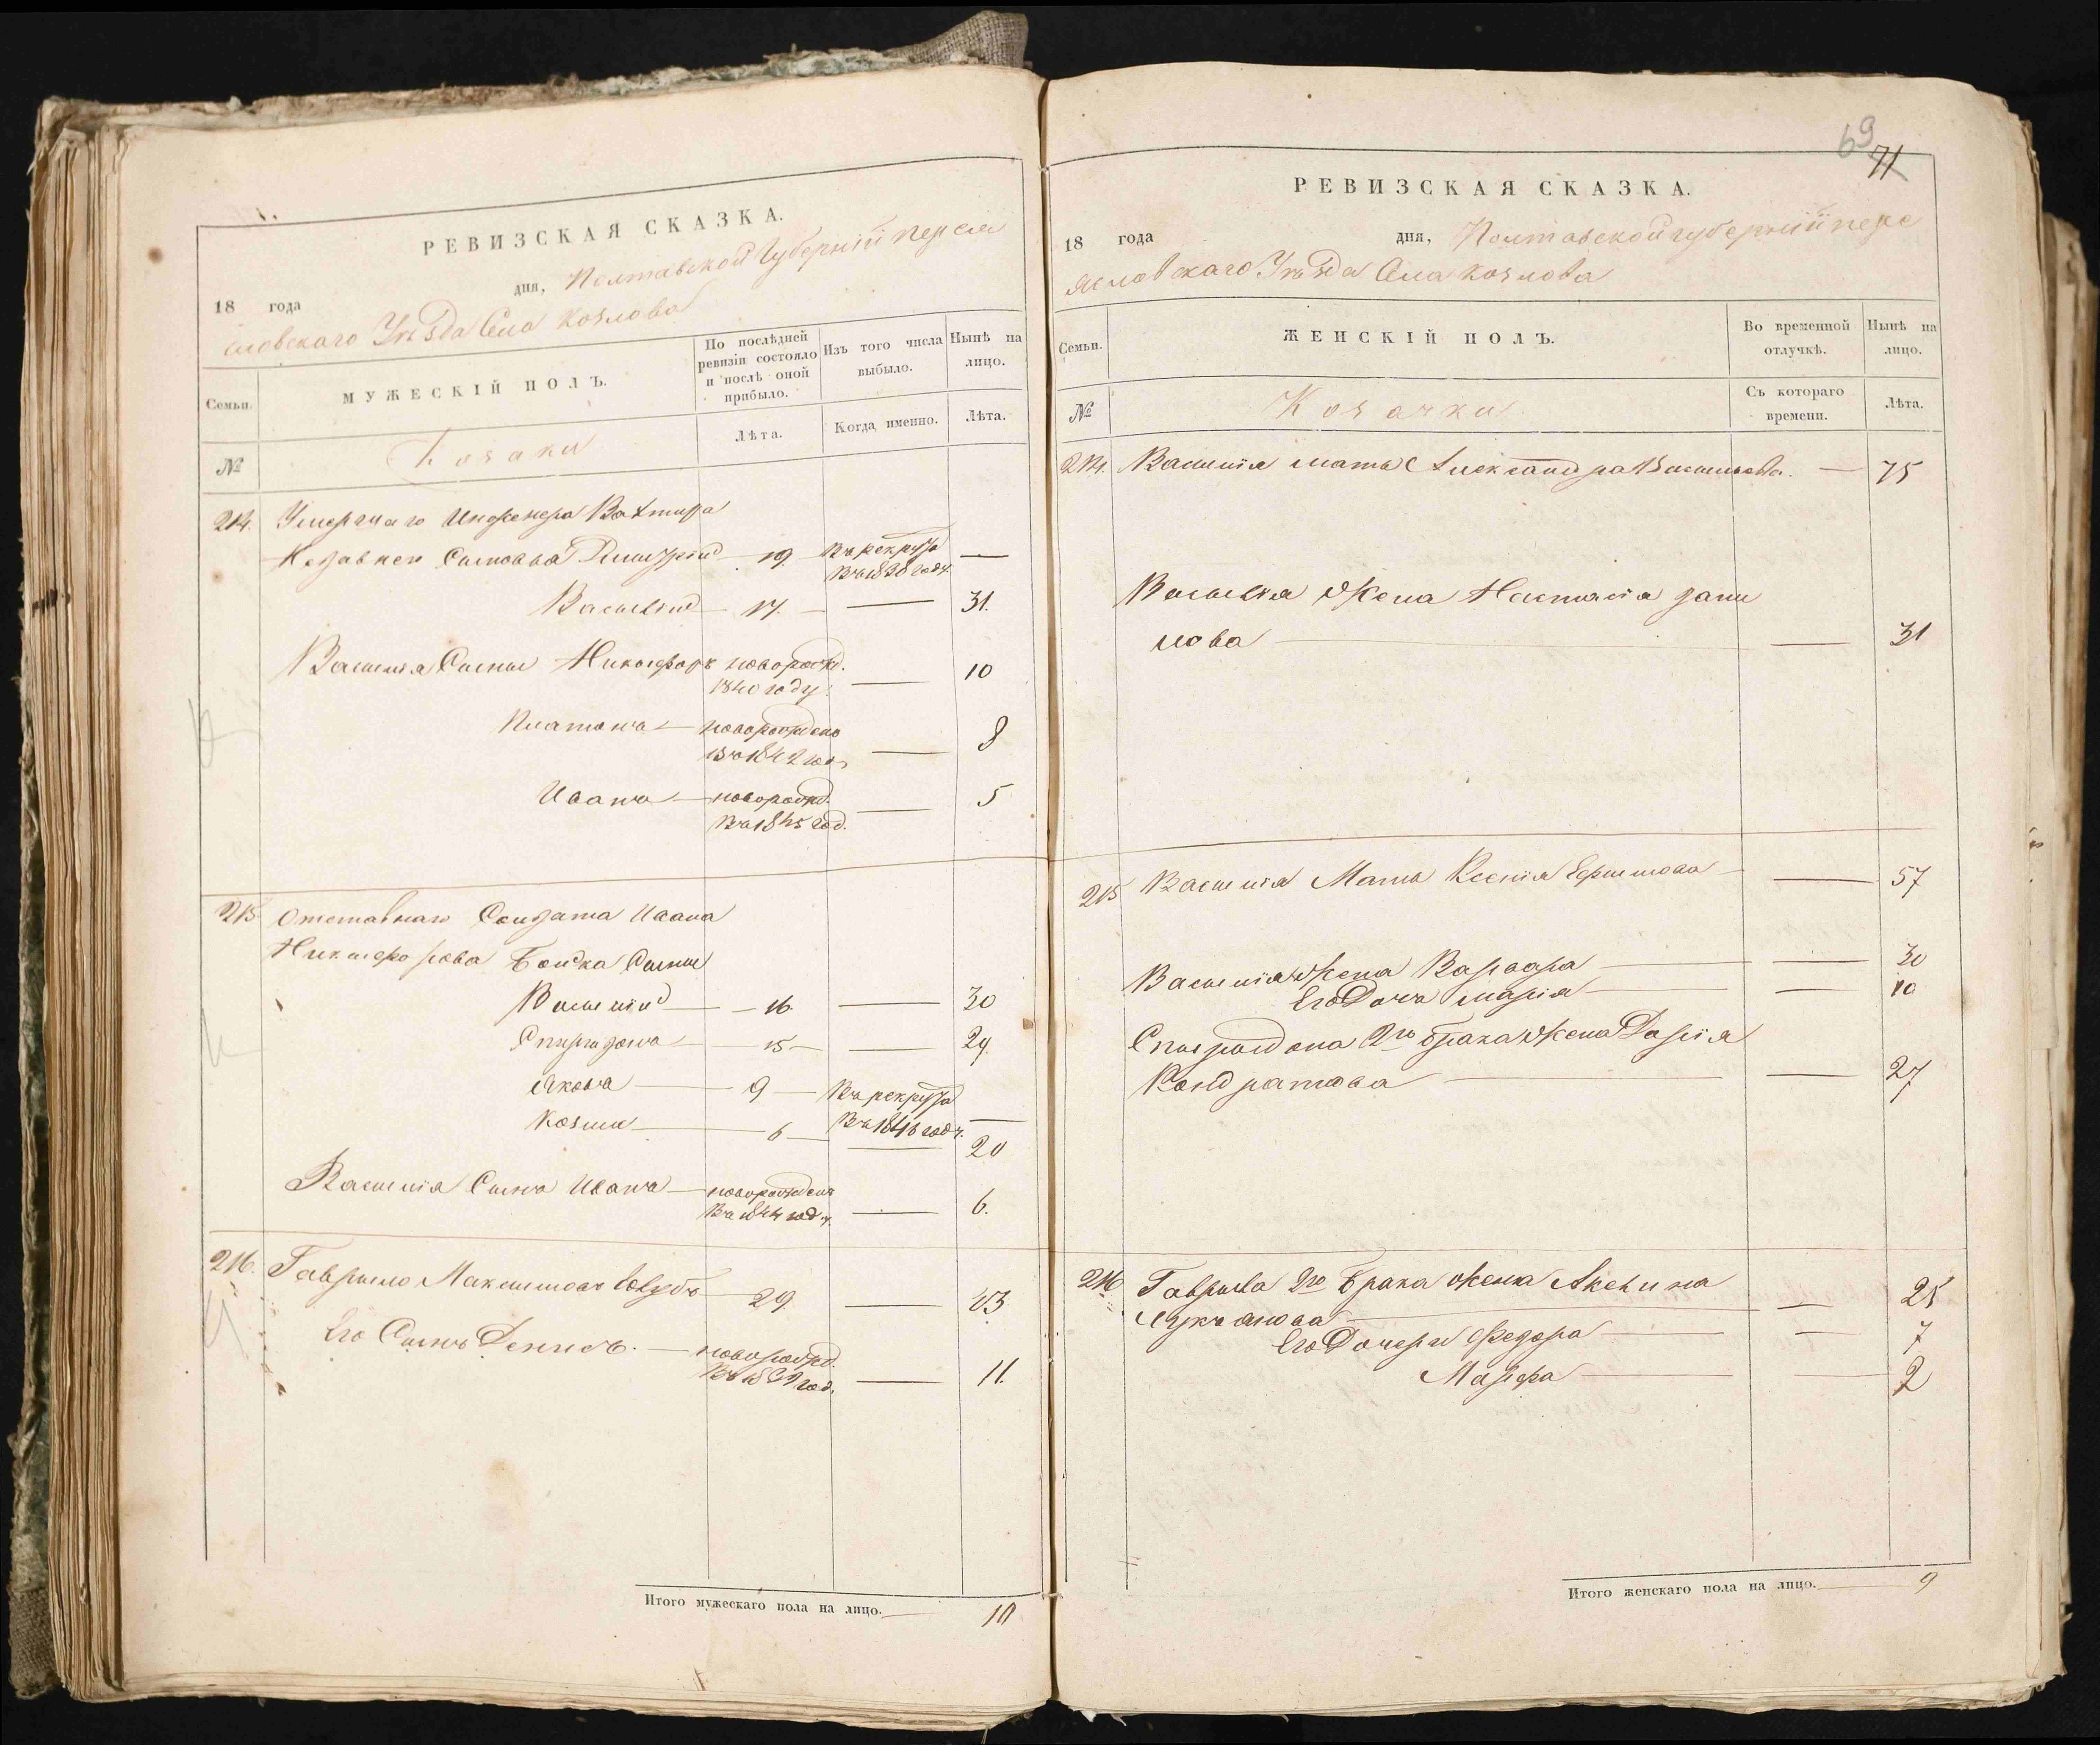 РЕВИЗСКАЯ СКАЗКА.
18 года дня, Полтавской Губерніи перея
словскаго Уѣзда Села Козлова
Семьи.
МУЖЕСКІЙ ПОЛЪ.
По послѣдней ревизіи состояло и послѣ оной прибыло.
Изъ того числа выбыло.
Нынѣ на лицо.
№
Козаки
Лѣта.
Когда именно.
Лѣта.
214. Умершаго
сыновья Дмитрій 19. Въ рекруты —
Въ 1838 году.
Василій 17. — 31.
Василія Сыны Никифоръ новорожд. 10
1840 году.
Платонъ — новорожденъ 8
въ 1842 год
Иванъ — новорожд. 5
въ 1845 год.
215 Отставнаго Солдата Ивана
Никифорова Бойка Сыны
Василій — 16. — 30
Спиридонъ — 15 — 29.
Яковъ — 9 — Въ рекруты
Въ 1846 году. —
Козма — 6 — 20
Василія Сынъ Иванъ — новорожденъ
въ 1844 году. — 6.
216. Гаврило Максимовъ 29. — 43
Его Сынъ Денисъ. — новорожд.
въ 1839 год. — 11.
Итого мужескаго пола на лицо. 10
69
71
РЕВИЗСКАЯ СКАЗКА.
18 года дня, Полтавской губерніи пере
яславскаго Уѣзда Села Козлова
Семьи.
ЖЕНСКІЙ ПОЛЪ.
Во временной отлучкѣ.
Нынѣ на лицо.
№
Козачки
Съ котораго времени.
Лѣта.
214. Василія мать Александра Васильева. — 75
Василія Жена Настасія Дани
лова — 31
215 Василія Мать Ксенія Ефимова — 57
Василія жена Варвара — 30
Его Дочь Марія — 10
Спиридона 2го брака жена Дарія
Кондратова — 27
216 Гаврила 2го Брака жена Акилина
Лукьянова — 25
Его Дочери Федора — 7
Марфа — 2
Итого женскаго пола на лицо. 9